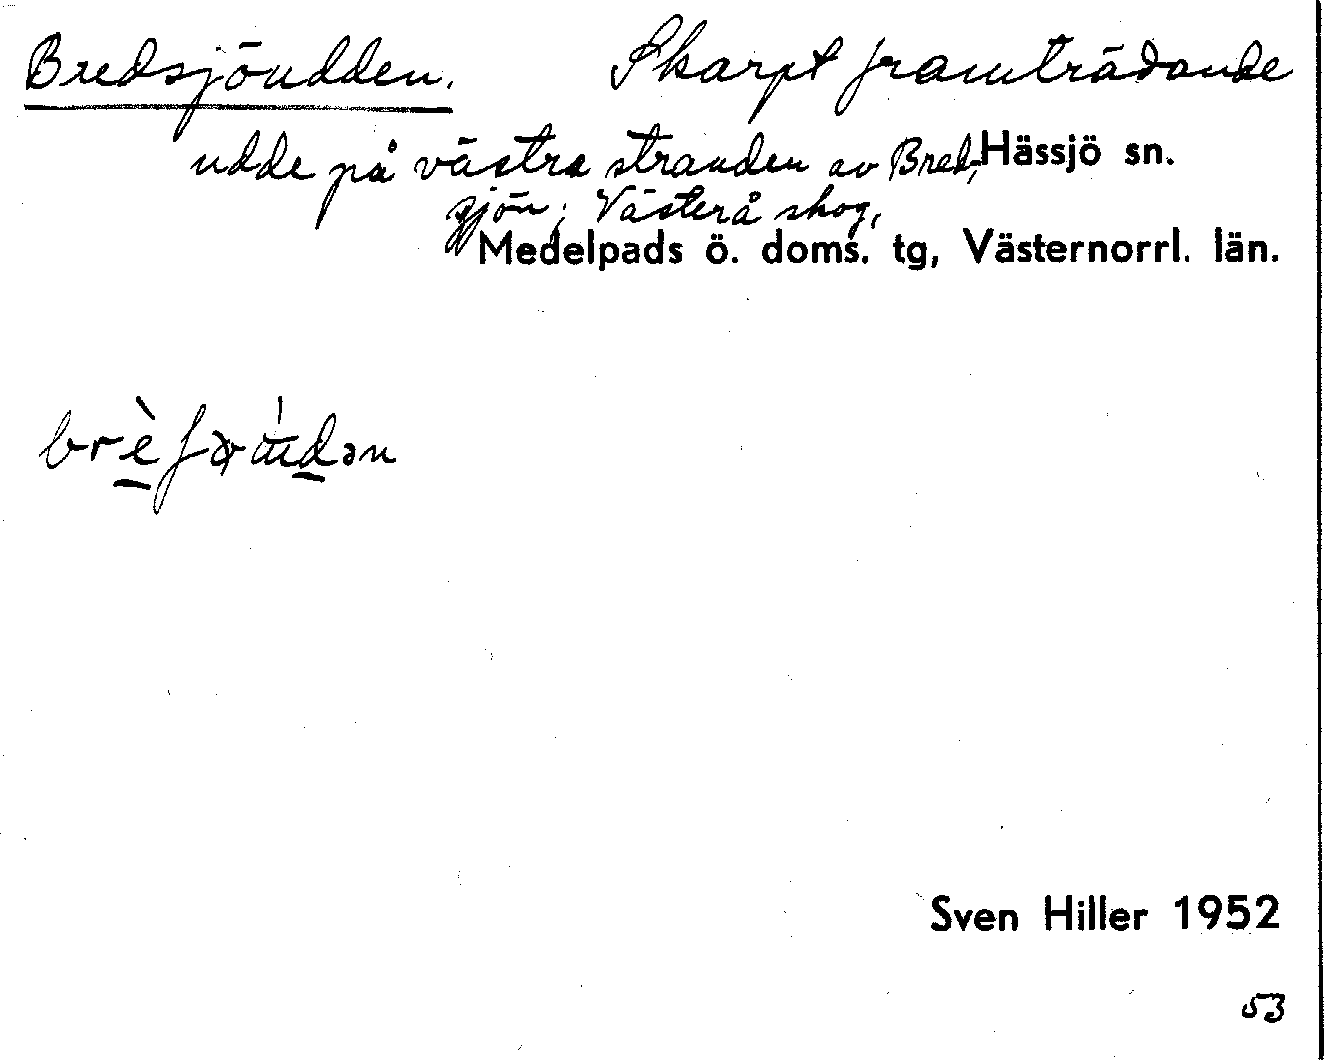 Bredsjöudden. Skarpt framträdande
udde på västra stranden av Bred- Hässjö sn.
sjön; Västerå skog,
Medelpads ö. doms. tg, Västernorrl. län.
Sven Hiller 1952
53